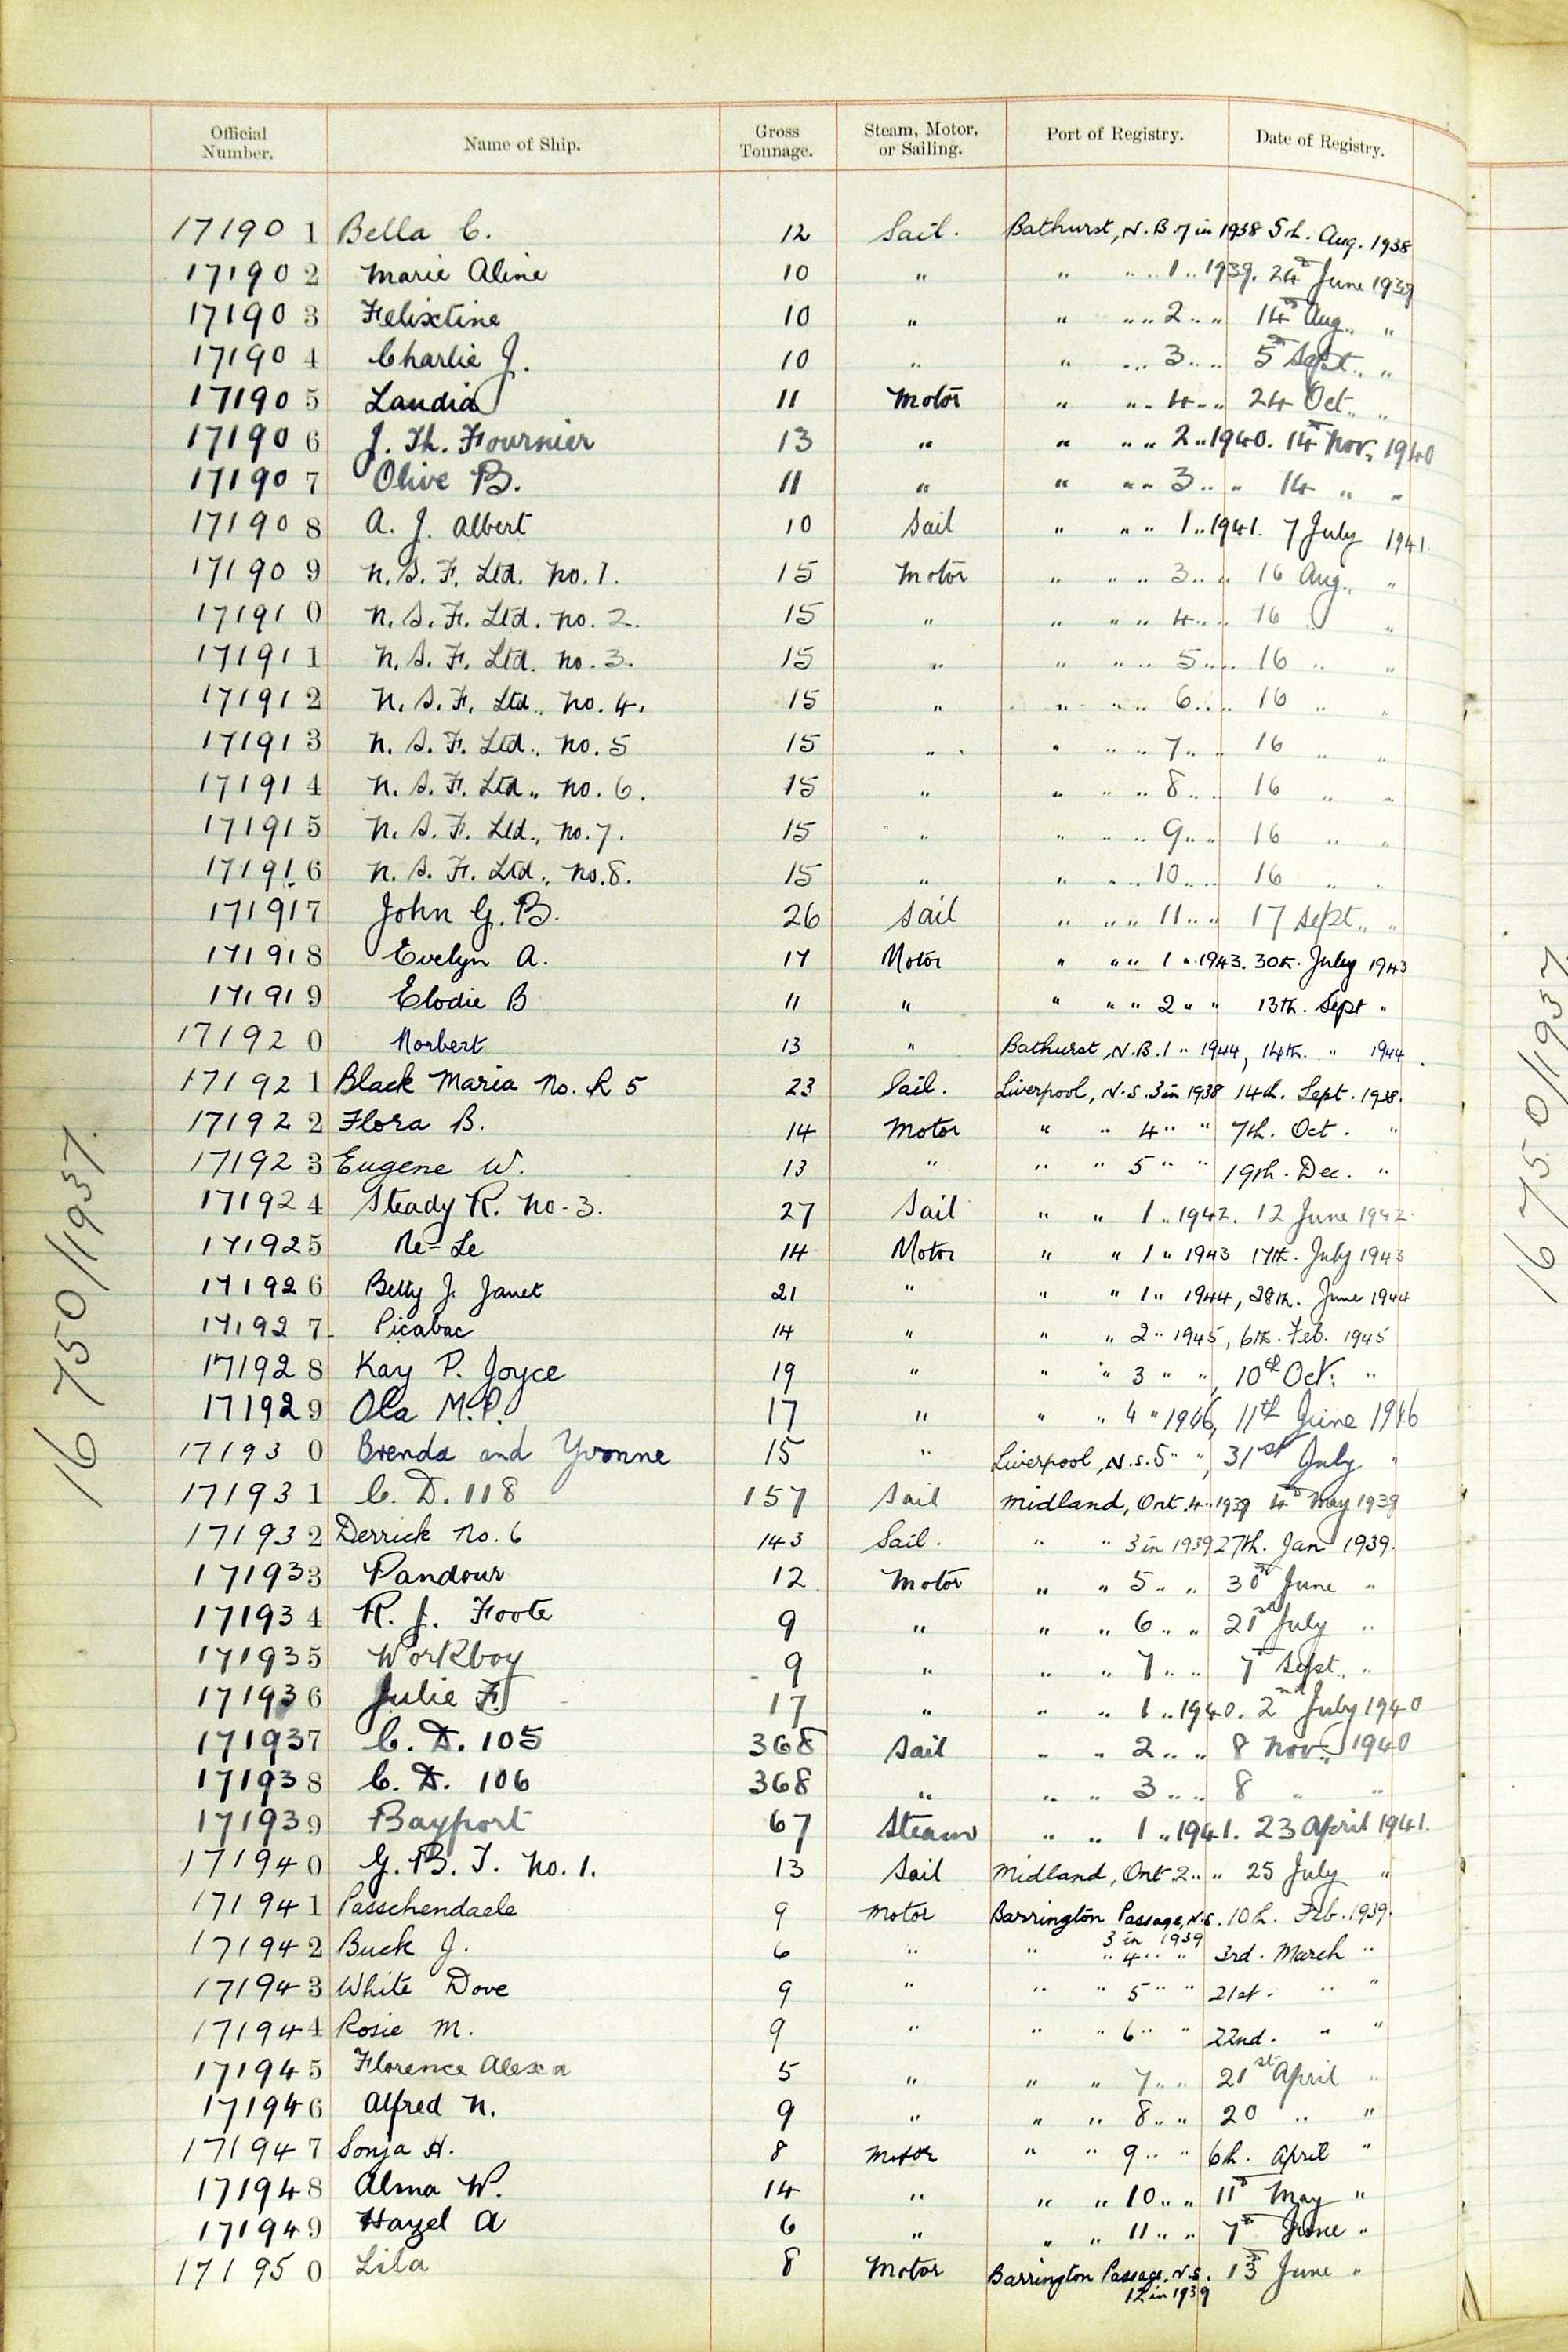 Official Number. Name of Ship. Gross Tonnage. Steam, Motor, or Sailing. Port of Registry. Date of Registry.
171901 Bella C. 12 Sail. Bathurst, N.B. 7 in 1938 5th. Aug. 1938
171902 Marie Aline 10 " " " " 1 " 1939. 24th June 1939
171903 Felixtine 10 " " " " 2 " " 14th Aug. "
171904 Charlie J. 10 " " " " 3 " " 5th Sept. "
171905 Landia 11 Motor " " " 4 " " 24 Oct. "
171906 J. Th. Fournier 13 " " " " 2 " 1940. 14th Nov. 1940
171907 Olive B. 11 " " " " 3 " " 14 " "
171908 A. J. Albert 10 Sail " " " 1 " 1941. 7 July 1941.
171909 N.S.F. Ltd. No. 1. 15 Motor " " " 3 " " 16 Aug. "
171910 N.S.F. Ltd. No. 2. 15 " " " " 4 " " 16 " "
171911 N.S.F. Ltd. No. 3. 15 " " " " 5 " " 16 " "
171912 N.S.F. Ltd. No. 4. 15 " " " " 6 " " 16 " "
171913 N.S.F. Ltd. No. 5 15 " " " " 7 " " 16 " "
171914 N.S.F. Ltd. No. 6. 15 " " " " 8 " " 16 " "
171915 N.S.F. Ltd. No. 7. 15 " " " " 9 " " 16 " "
171916 N.S.F. Ltd. No. 8. 15 " " " " 10 " " 16 " "
171917 John G. B. 26 Sail " " " 11 " " 17 Sept. "
171918 Evelyn A. 17 Motor " " " 1 " 1943. 30th. July 1943
171919 Elodie B 11 " " " " 2 " " 13th. Sept "
171920 Norbert 13 " Bathurst, N.B. 1 " 1944, 14th. " 1944.
171921 Black Maria No. R 5 23 Sail. Liverpool, N.S. 3 in 1938 14th. Sept. 1938.
171922 Flora B. 14 Motor " " 4 " " 7th. Oct. "
171923 Eugene W. 13 " " " 5 " " 19th. Dec. "
171924 Steady R. No. 3. 27 Sail " " 1 " 1942. 12 June 1942.
171925 Re-Le 14 Motor " " 1 " 1943 17th. July 1943
171926 Betty J. Janet 21 " " " 1 " 1944, 28th. June 1944
171927 Picabac 14 " " " 2 " 1945, 6th. Feb. 1945
171928 Kay P. Joyce 19 " " " 3 " ", 10th Oct. "
171929 Ola M.P. 17 " " " 4 " 1946, 11th June 1946
171930 Brenda and Yvonne 15 " Liverpool, N.S. 5 " ", 31st July "
171931 C. D. 118 157 Sail Midland, Ont. 4 " 1939 4th May 1939
171932 Derrick No. 6 143 Sail. " " 3 in 1939 27th. Jan 1939.
171933 Pandour 12 Motor " " 5 " " 30th June "
171934 R. J. Foote 9 " " " 6 " " 21st July "
171935 Workboy 9 " " " 7 " " 7th Sept. "
171936 Julie F 17 " " " 1 " 1940. 2nd July 1940
171937 C. D. 105 368 Sail " " 2 " " 8 Nov. 1940
171938 C. D. 106 368 " " " 3 " " 8 " "
171939 Bayport 67 Steam " " 1 " 1941. 23 April 1941.
171940 G. B. T. No. 1. 13 Sail Midland, Ont 2 " " 25 July "
171941 Passchendaele 9 Motor Barrington Passage, N.S. 10th. Feb. 1939.
3 in 1939
171942 Buck J. 6 " " " 4 " " 3rd. March "
171943 White Dove 9 " " " 5 " " 21st. " "
171944 Rosie M. 9 " " " 6 " " 22nd. " "
171945 Florence Alexa 5 " " " 7 " " 21st April "
171946 Alfred N. 9 " " " 8 " " 20 " "
171947 Sonja H. 8 Motor " " 9 " " 6th. April "
171948 Alma W. 14 " " " 10 " " 11th May "
171949 Hazel A 6 " " " 11 " " 7th June "
171950 Lila 8 Motor Barrington Passage, N.S. 13th June "
12 in 1939
16750/1937.
16750/1937